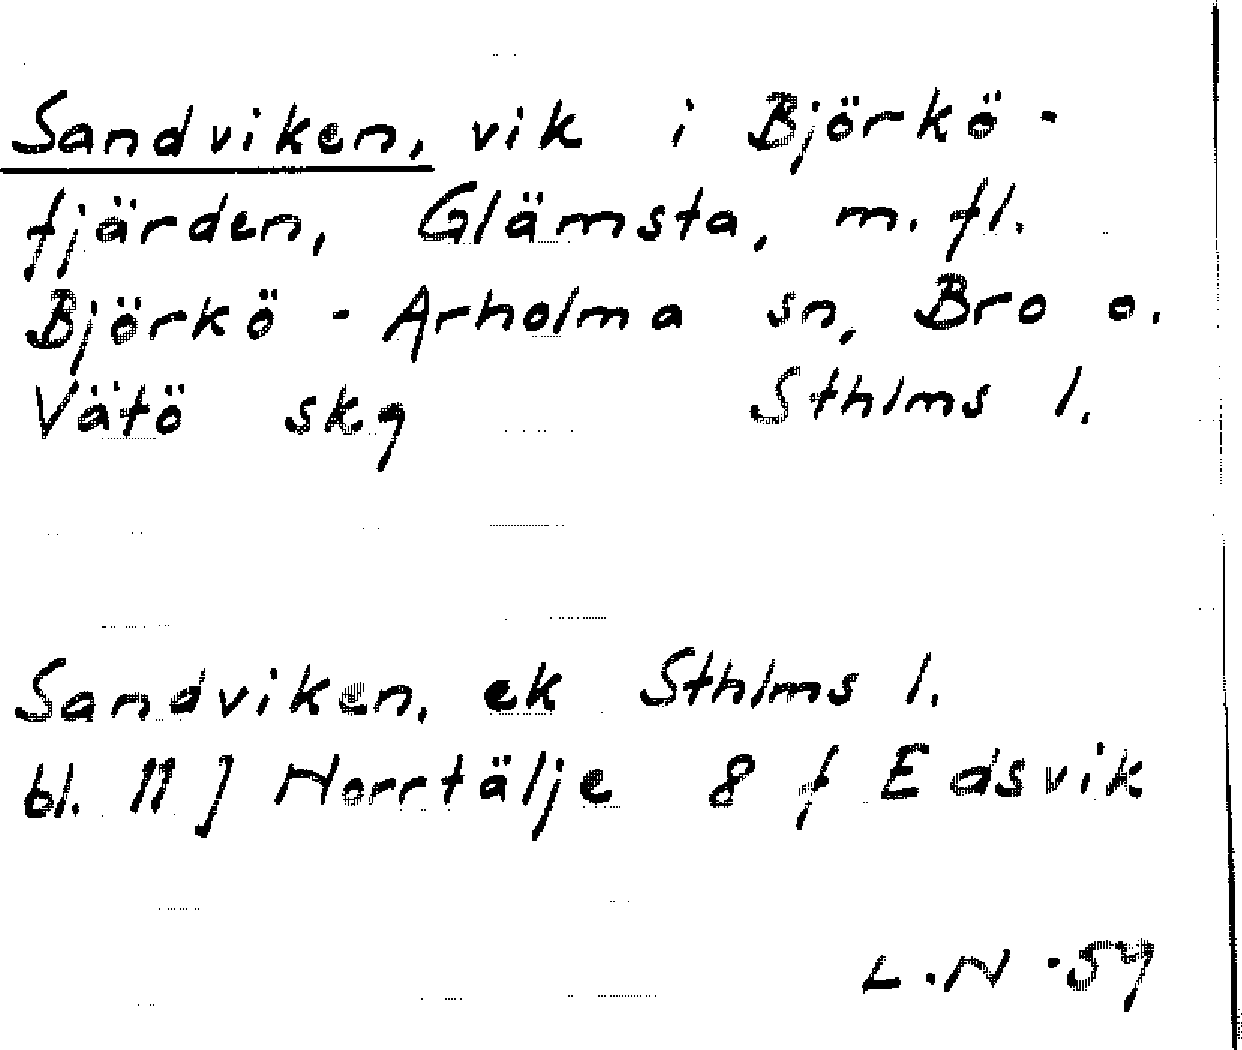 Sandviken, vik i Björkö-
fjärden, Glämsta, m. fl.
Björkö - Arholma sn, Bro o.
Vätö skg Sthlms l.
Sandviken, ek Sthlms l.
bl. 11 J Norrtälje 8 f Edsvik
L.N -59